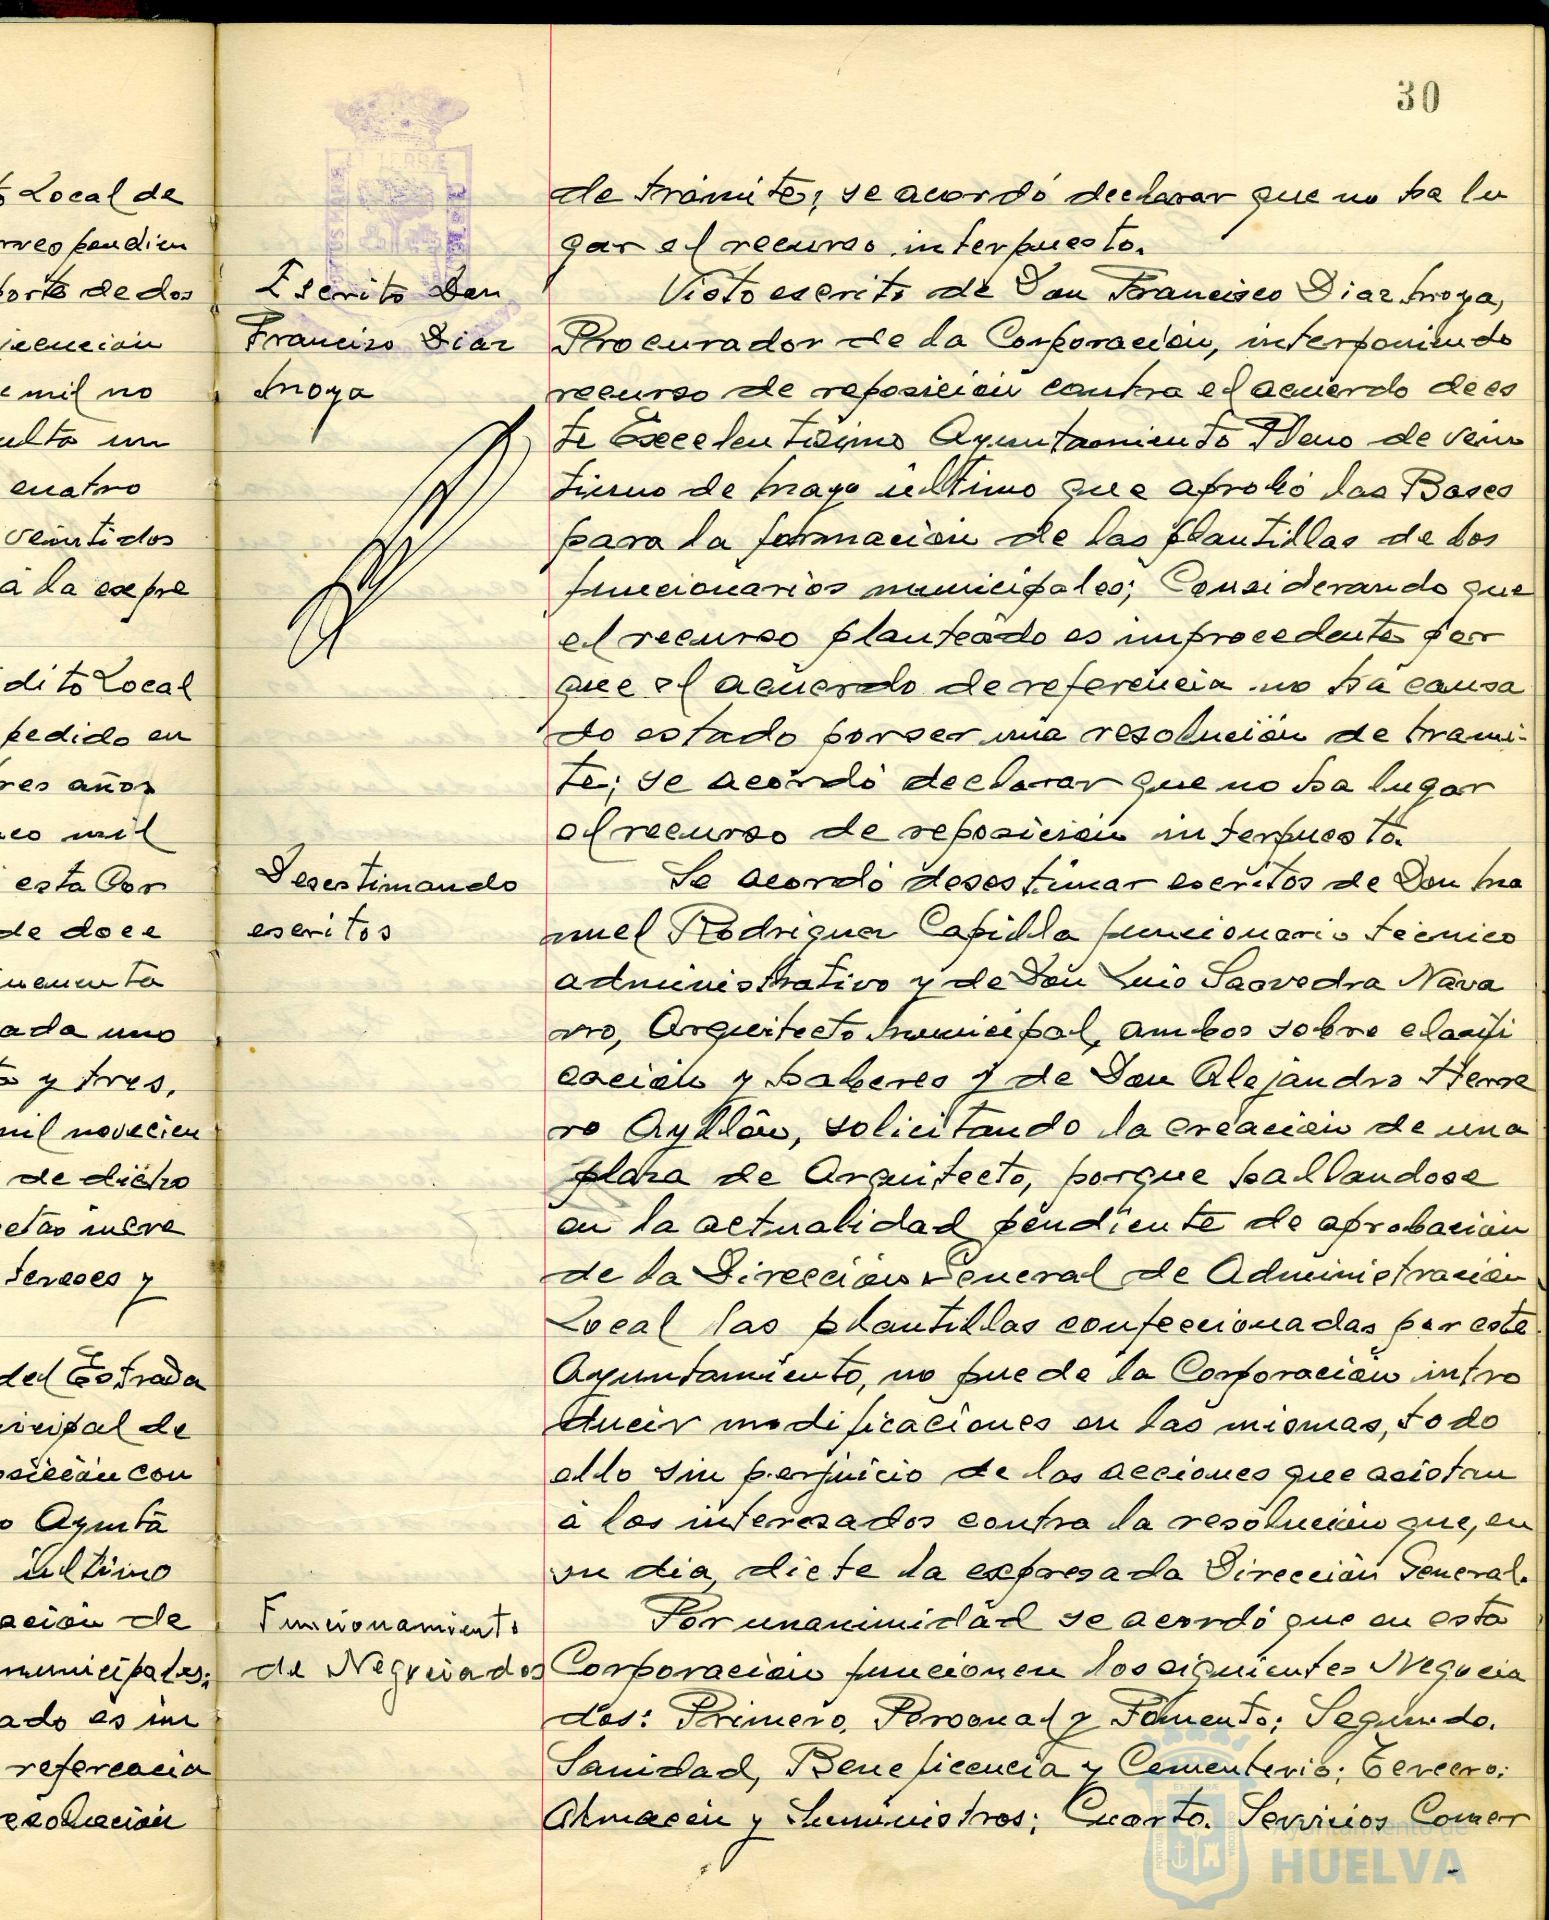 30
de trámite; se acordó declarar que no ha lu
gar el recurso interpuesto.
Escrito Don
Francisco Diaz
Moya
Visto escrito de Don Francisco Diaz Moya,
Procurador de la Corporación, interponiendo
recurso de reposición contra el acuerdo de es
te Excelentísimo Ayuntamiento Pleno de vein
tiuno de Mayo último que aprobó las Bases
para la formación de las plantillas de los
funcionarios municipales; Considerando que
el recurso planteado es improcedente por
que el acuerdo de referencia no há causa
do estado por ser una resolución de trami-
te; se acordó declarar que no ha lugar
el recurso de reposición interpuesto.
Desestimando
escritos
Se acordó desestimar escritos de Don Ma
nuel Rodriguez Capilla funcionario técnico
administrativo y de Don Luis Saavedra Nava
rro, Arquitecto Municipal, ambos sobre clasifi
cación y haberes y de Don Alejandro Herre
ro Ayllón, solicitando la creación de una
plaza de Arquitecto, porque hallandose
en la actualidad pendiente de aprobación
de la Dirección General de Administración
Local las plantillas confeccionadas por este
Ayuntamiento, no puede la Corporación intro
ducir modificaciones en las mismas, todo
ello sin perjuicio de las acciones que asistan
á los interesados contra la resolución que, en
su dia, dicte la expresada Dirección General.
Funcionamiento
de Negociados
Por unanimidad se acordó que en esta
Corporación funcionen los siguientes Negocia
dos: Primero, Personal y Fomento; Segundo.
Sanidad, Beneficencia y Cementerio; Tercero:
Almacén y Suministros; Cuarto. Servicios Comer
Local de
porte de dos
mil no
cuatro
veintidos
á la expre
Local
pedido en
tres años
mil
esta Cor
de doce
cada uno
y tres,
mil novecien
de dicho
tereses y
del Estrada
nicipal de
sición con
Ayunta
último
ación de
municipales;
ado es im
referencia
resolución
Ayuntamiento de
HUELVA